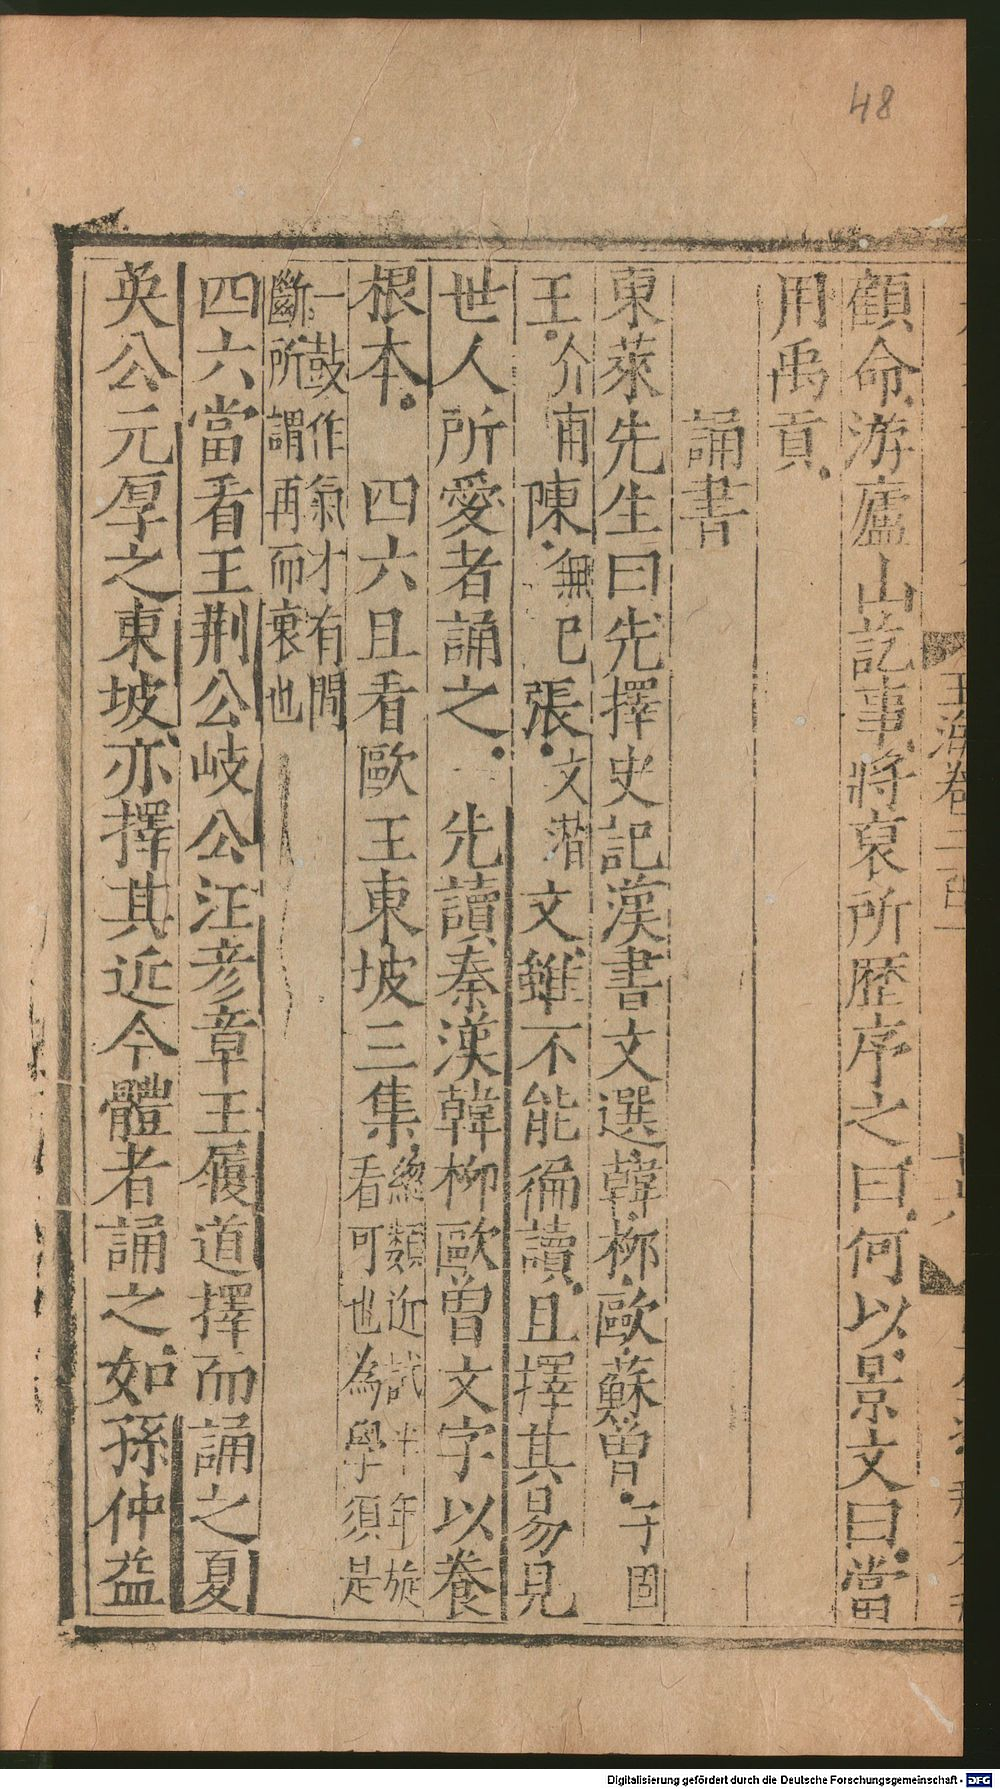 48
玉海卷二百一
顧命游廬山訖事將裒所歷序之曰何以景文曰當
用禹貢
誦書
東萊先生曰先擇史記漢書文選韓柳歐蘇曾子固
王介甫陳無已張文潛文雖不能徧讀且擇其易見
世人所愛者誦之 先讀秦漢韓柳歐曽文字以養
根本 四六且看歐王東坡三集總類近試半年旋
看可也為學須是
一鼓作氣才有間
斷所謂再而衰也
四六當看王荆公岐公汪彦章王履道擇而誦之夏
英公元厚之東坡亦擇其近今體者誦之如孫仲益
Digitalisierung gefördert durch die Deutsche Forschungsgemeinschaft - DFG